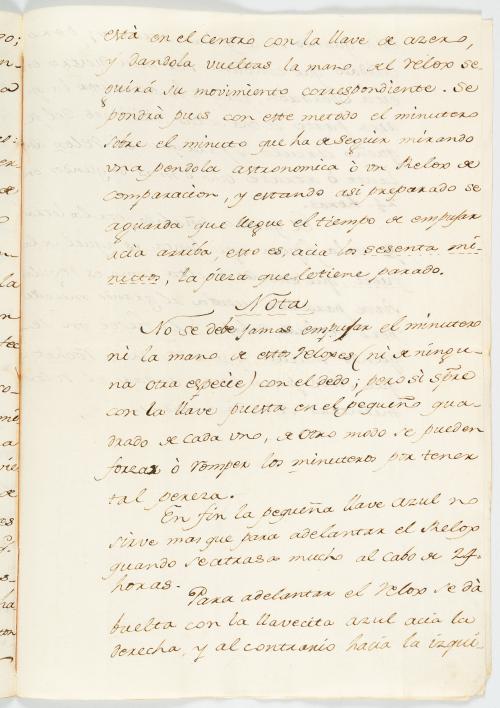 està en el centro con la llave de azero,
y dandola vueltas la mano, el Relox se-
guirá su movimiento correspondiente. Se
pondrà pues con este metodo el minutero
sobre el minuto que ha de seguir mirando
una pendola astronomica ò un Relox de
comparacion, y estando asi preparado se
aguarda que llegue el tiempo de empujar
àcia arriba, esto es, acia los sesenta mi-
nutos, la pieza que le tiene parado.
Nota
No se debe jamas empujar el minutero
ni la mano de estos Reloxes (ni de ningu-
na otra especie) con el dedo; pero si spre
con la llave puesta en el pequeño qua-
drado de cada uno, de otro modo se pueden
forzar ò romper los minuteros por tener
tal pereza.
En fin la pequeña llave azul no
sirve mas que para adelantar el Relox
quando se atrasa mucho al cabo de 24
horas.
Para adelantar el Relox se dà
buelta con la llavecita azul acia la
derecha, y al contrario hacia la izqui-